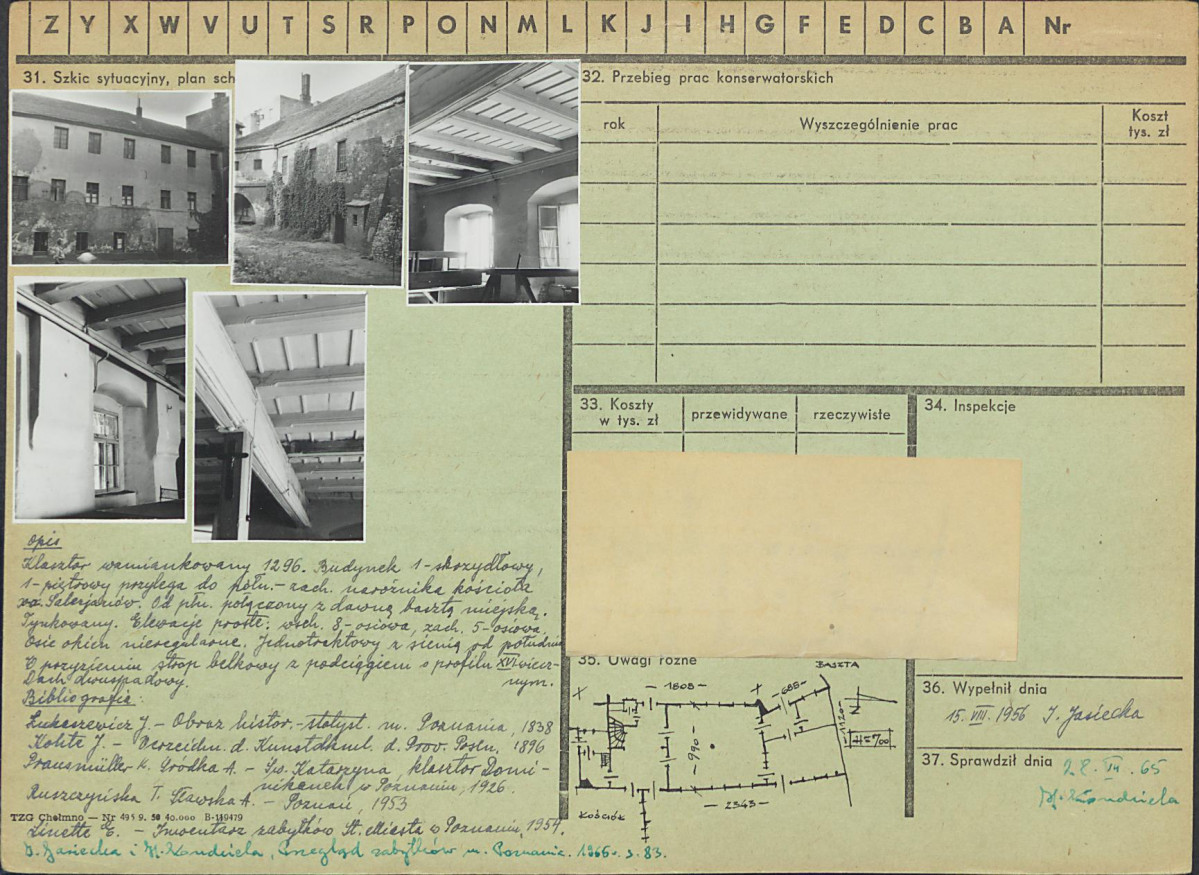 Z Y X W V U T S R P O N M L K J I H G F E D C B A Nr
31. Szkic sytuacyjny, plan sch
32. Przebieg prac konserwatorskich
rok
Wyszczególnienie prac
Koszt
tys. zł
33. Koszty
w tys. zł
przewidywane
rzeczywiste
34. Inspekcje
Opis
Klasztor wzmiankowany 1296. Budynek 1-skrzydłowy,
1-piętrowy przylega do półn.-zach. narożnika kościoła
Salezjanów. Od płn. połączony z dawną basztą miejską.
Tynkowany. Elewacje proste: wsch. 8-osiowa, zach. 5-osiowa.
Osie okien nieregularne. Jednotraktowy z sienią od południa
W przyziemiu strop belkowy z podciągiem o profilu XVI wiecz-
nym.
Dach dwuspadowy.
Bibliografia:
Łukaszewicz J. - Obraz histor.-statyst. m. Poznania, 1838
Kohte J. - Verzeichn. d. Kunstdkml. d. Prov. Posen, 1896
Prausmüller K. Gródka A. - Św. Katarzyna, klasztor Domi-
nikanek w Poznaniu, 1926.
Ruszczyńska T. Sławska A. - Poznań, 1953
TZG Chełmno - Nr 495 9. 58 40.000 B-110479
Linette E. - Inwentarz zabytków St. Miasta w Poznaniu, 1954.
I. Jasiecka i H. Kondziela, Przegląd zabytków m. Poznania. 1966. s. 83.
35. Uwagi różne
BASZTA
1803
688
1420
N
H=700
990
2343
KOŚCIÓŁ
36. Wypełnił dnia
15. VIII. 1956 I. Jasiecka
37. Sprawdził dnia
65
H. Kondziela